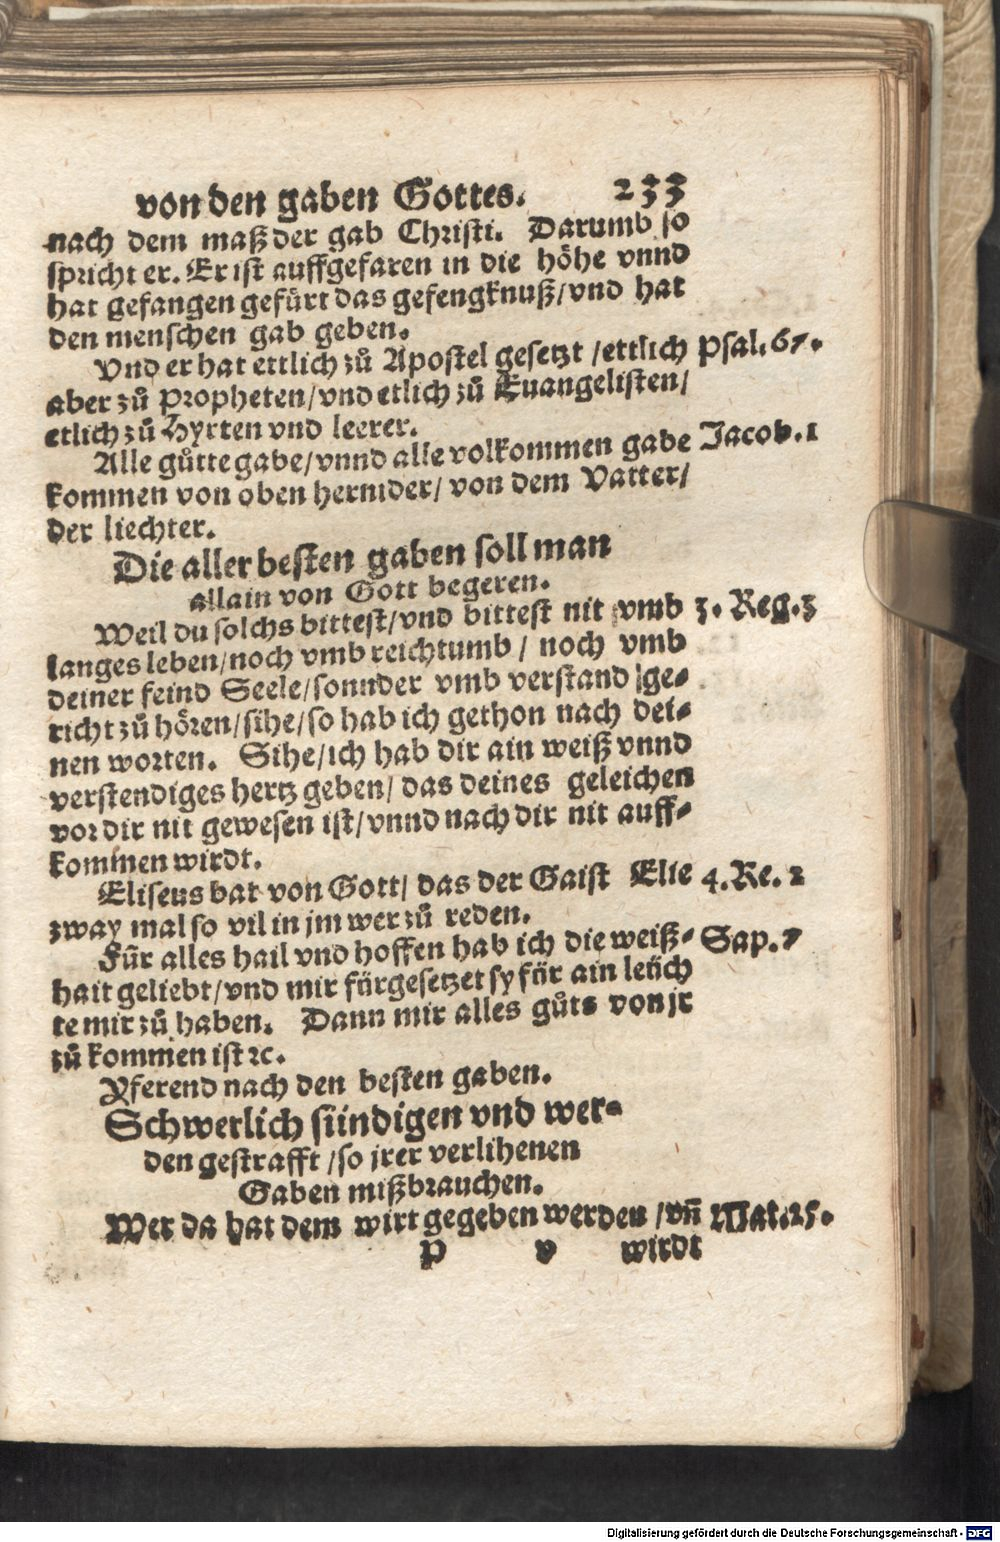 von den gaben Gottes. 233
nach dem maß der gab Christi. Darumb so
spricht er. Er ist auffgefaren in die höhe vnnd
hat gefangen gefürt das gefengknuß/vnd hat
den menschen gab geben.
Vnd er hat ettlich zů Apostel gesetzt /ettlich Psal.67.
aber zů Propheten/vnd etlich zů Euangelisten/
etlich zů Hyrten vnd leerer.
Alle gůtte gabe/vnnd alle volkommen gabe Jacob.1
kommen von oben hernider/ von dem Vatter/
der liechter.
Die aller besten gaben soll man
allain von Gott begeren.
Weil du solchs bittest/vnd bittest nit vmb 3. Reg.3
langes leben/noch vmb reichtumb / noch vmb
deiner feind Seele/sonnder vmb verstand ge-
richt zů hören/sihe/so hab ich gethon nach dei-
nen worten. Sihe/ich hab dir ain weiß vnnd
verstendiges hertz geben/ das deines geleichen
vor dir nit gewesen ist/vnnd nach dir nit auff-
kommen wirdt.
Eliseus bat von Gott/ das der Gaist Elie 4.Re.2
zway mal so vil in jm wer zů reden.
Für alles hail vnd hoffen hab ich die weiß- Sap.7
hait geliebt/vnd mir fürgesetzet sy für ain leüch
te mir zů haben. Dann mir alles gůts von jr
zů kommen ist ꝛc.
Yferend nach den besten gaben.
Schwerlich sündigen vnd wer-
den gestrafft /so jrer verlihenen
Gaben mißbrauchen.
Wer da hat dem wirt gegeben werden /vñ Mat.25.
P v wirdt
Digitalisierung gefördert durch die Deutsche Forschungsgemeinschaft - DFG